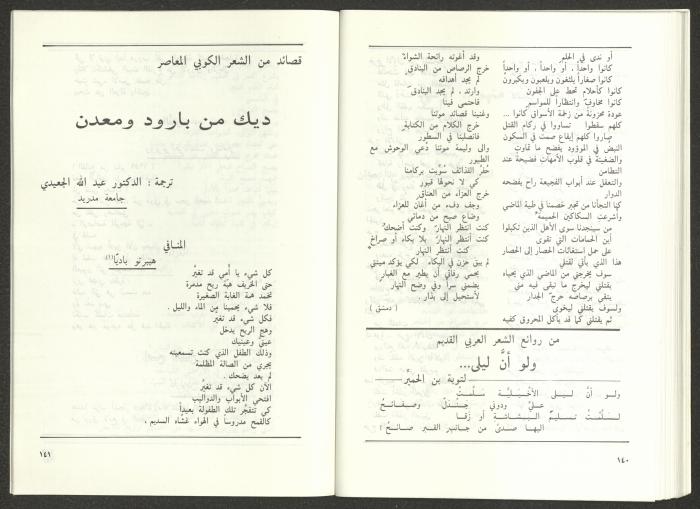 أو ندى في الحلم
كانوا واحداً ، أو واحداً ، أو واحداً
كانوا صغاراً يلثغون ويلعبون ويكبرون
كانوا كأحلام تحط على الجفون
كانوا مخاوف وانتظاراً للمواسم
عودة محزونة من زحمة الأسواق كانوا ...
كلهم سقطوا تساووا في ركام القتل
صاروا كلهم إيقاع صمت في السكون
النبض في الموؤود يفضح ما تماوت
والضغينة في قلوب الأمهات فضيحة عند
التظامن
والتعقل عند أبواب الفجيعة راح يفضحه
الدوار
كنا التجأنا من تجبر خصمنا في طية الماضي
وأشرعت السكاكين الحميمة
من سينجدنا سوى الأهل الذين تكبلوا
أين الحمامات التي تقوى
على حمل استغاثات الحصار إلى الحصار
هذا الذي يأتي لقتلي
سوف يخرجني من الماضي الذي يحياه
يقتلني ليخرج ما تبقى فيه مني
ينتقي برصاصه خرج الجدار
ولسوف يقتلني ليخوى
ثم يقتلني كما قد يأكل المحروق كفيه
وقد أغوته رائحة الشواء
خرج الرصاص من البنادق
لم يجد أهدافه
وارتد ، لم يجد البنادق
فاحتمى فينا
وغنينا قصائد موتنا
خرج الكلام من الكتابة
فانصلينا في السطور
وإلى وليمة موتنا دعي الوحوش مع
الطيور
حفر القذائف سويت بركامنا
كي لا نحولها قبور
خرج العزاء من العناق
وجف دفء من أغان للعزاء
وضاع صبح من دمائي
كنت أنتظر النهار وكنت أضحك
كنت أنتظر النهار بلا بكاء أو صراخ
كنت أنتظر النهار
لم يبق حزن في البكاء لكي يؤكد ميتتي
يحمي رفاتي أن يطير مع الغبار
يضمني سراً وفي وضح النهار
لأستحيل إلى بذار .
( دمشق )
من روائع الشعر العربي القديم
ولو أنَّ ليلى...
لتوبة بن الحميَّر
ولو أنّ ليلى الأخيلية سلمت
عليّ ودوني جندل وصفائح
لسلمت تسليم البشاشة أو زقا
إليها صدى من جانب القبر صائح !
١٤٠
قصائد من الشعر الكوبي المعاصر
ديك من بارود ومعدن
ترجمة : الدكتور عبد الله الجعيدي
جامعة مدريد
المنافي
هيبرتو باديّا(١)
كل شيء يا أمي قد تغيّر
حتى الخريف هبة ريح مدمرة
تخمد همة الغابة الصغيرة
فلا شيء يحمينا من الماء والليل .
فكل شيء قد تغيّر
وهج الريح يدخل
عيني وعينيك
وذلك الطفل الذي كنت تسمعينه
يجري من الصالة المظلمة
لم يعد يضحك .
الآن كل شيء قد تغيّر
افتحي الأبواب والدواليب
كي تنفجر تلك الطفولة بعيداً
كالقمح مدروساً في الهواء غشاء السديم .
١٤١